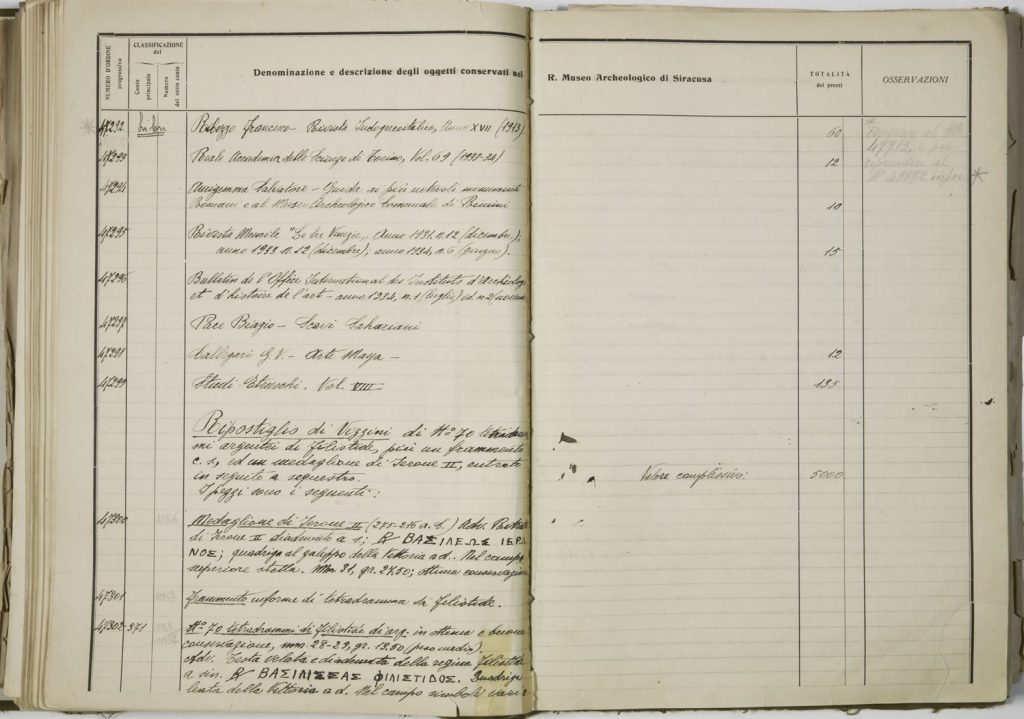 NUMERO D'ORDINE progressivo
CLASSIFICAZIONE del
Conto principale
Numero del sotto conto
Denominazione e descrizione degli oggetti conservati nel R. Museo Archeologico di Siracusa
TOTALITÀ dei prezzi
OSSERVAZIONI
47292 Libri Ribezzo Francesco – Rivista Indogrecoitalica, Anno XVII (1913) 60
47293 Reale Accademia delle Scienze di Torino, Vol. 69 12
47294 Aurigemma Salvatore – Guida ai più notevoli monumenti
Romani e al Museo Archeologico Comunale di Rimini 10
47295 Rivista Mensile "Le tre Venezie, Anno 1931 n. 12 (dicembre);
anno 1933 n. 12 (dicembre); anno 1934, n. 6 (giugno). 15
47296 Bulletin de l'Office International des Instituts d'Archéolog.
et d'histoire de l'art – anno 1934, n. 1 (luglio) ed n. 2
47297 Pace Biagio – Scavi Sahariani
47298 Callegari G. V. – Arte Maya – 12
47299 Studi Etruschi. Vol. VIII 135
Ripostiglio di Vizzini di N° 70 tetradram
mi argentei di Filistide, più un frammento
c. s., ed un medaglione di Ierone II, entrato
in seguito a sequestro. Valore complessivo: 5000
I pezzi sono i seguenti:
47300 Medaglione di Ierone II (275-216 a. C.) Adv.
di Ierone II diademato a s; ℞ ΒΑΣΙΛΕΩΣ ΙΕΡΩ
ΝΟΣ; quadriga al galoppo della Vittoria a d. Nel campo
superiore stella. Mm. 31, gr. 27.50; ottima conservazione
47301 Frammento informe di tetradramma di Filistide.
47302-371 N° 70 tetradrammi di Filistide di arg. in ottima e buona
conservazione, mm. 28-29, gr. 13.50 (peso medio).
Adv. Testa velata e diademata della regina Filistide
a sin. ℞ ΒΑΣΙΛΙΣΣΑΣ ΦΙΛΙΣΤΙΔΟΣ. Quadriga
della Vittoria a d. Nel campo simboli